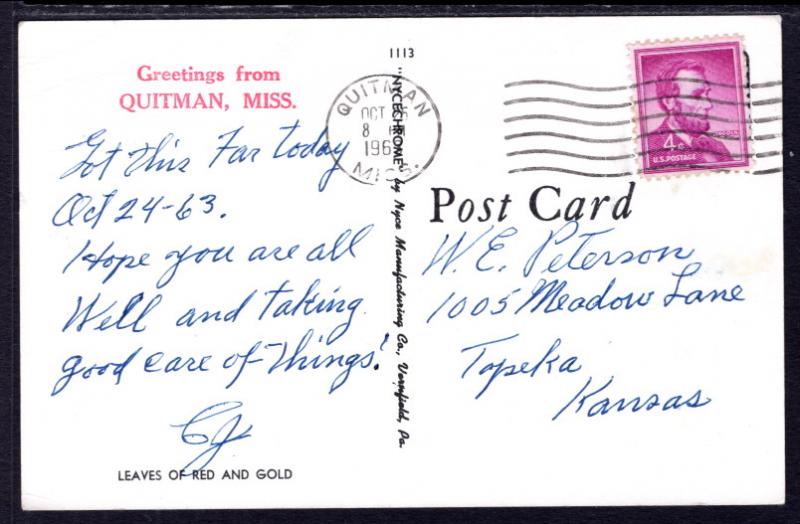 1113
Greetings from
QUITMAN, MISS.
Got this Far today
Oct 24-63.
Hope you are all
Well and taking
good care of "Things".
CJ
LEAVES OF RED AND GOLD
"NYCECHROME" by Nyce Manufacturing Co., Vernfield, Pa.
QUITMAN
OCT
8
196
MISS.
4c
LINCOLN
U.S. POSTAGE
Post Card
W. E. Peterson
1005 Meadow Lane
Topeka
Kansas